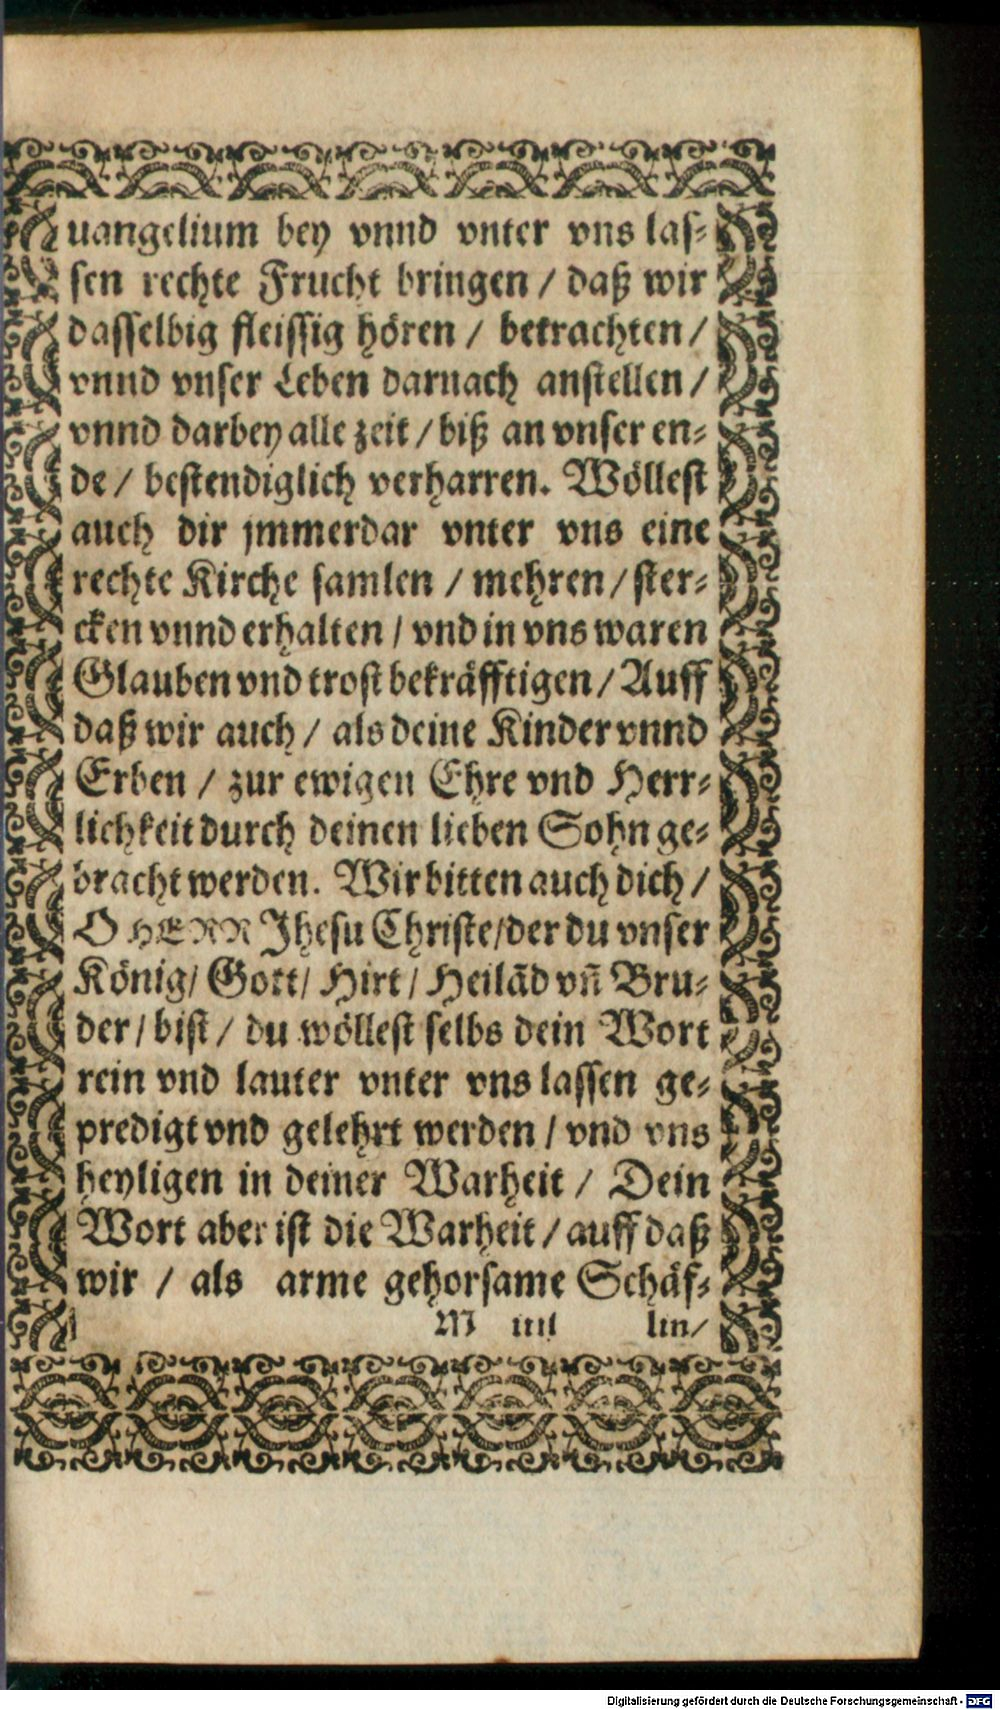 uangelium bey vnnd vnter vns las⸗
sen rechte Frucht bringen / daß wir
dasselbig fleissig hören / betrachten /
vnnd vnser Leben darnach anstellen /
vnnd darbey alle zeit / biß an vnser en⸗
de / bestendiglich verharren. Wöllest
auch dir jmmerdar vnter vns eine
rechte Kirche samlen / mehren / ster⸗
cken vnnd erhalten / vnd in vns waren
Glauben vnd trost bekräfftigen / Auff
daß wir auch / als deine Kinder vnnd
Erben / zur ewigen Ehre vnd Herr⸗
lichkeit durch deinen lieben Sohn ge⸗
bracht werden. Wir bitten auch dich /
O HERR Jhesu Christe / der du vnser
König / Gott / Hirt / Heilād vn̄ Bru⸗
der / bist / du wöllest selbs dein Wort
rein vnd lauter vnter vns lassen ge⸗
predigt vnd gelehrt werden / vnd vns
heyligen in deiner Warheit / Dein
Wort aber ist die Warheit / auff daß
wir / als arme gehorsame Schäf⸗
M iiij lin /
Digitalisierung gefördert durch die Deutsche Forschungsgemeinschaft - DFG